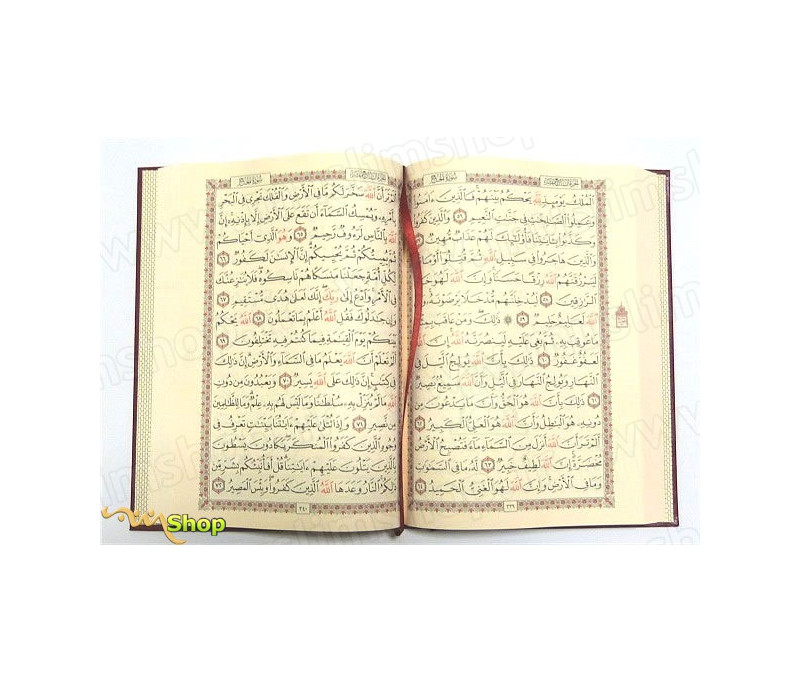 سُورَةُ الحَجِّ
ٱلْمُلْكُ يَوْمَئِذٍ لِّلَّهِ يَحْكُمُ بَيْنَهُمْ فَٱلَّذِينَ ءَامَنُوا۟
وَعَمِلُوا۟ ٱلصَّٰلِحَٰتِ فِى جَنَّٰتِ ٱلنَّعِيمِ ٥٦ وَٱلَّذِينَ كَفَرُوا۟
وَكَذَّبُوا۟ بِـَٔايَٰتِنَا فَأُو۟لَٰٓئِكَ لَهُمْ عَذَابٌ مُّهِينٌ ٥٧
وَٱلَّذِينَ هَاجَرُوا۟ فِى سَبِيلِ ٱللَّهِ ثُمَّ قُتِلُوٓا۟ أَوْ مَاتُوا۟
لَيَرْزُقَنَّهُمُ ٱللَّهُ رِزْقًا حَسَنًا وَإِنَّ ٱللَّهَ لَهُوَ خَيْرُ
ٱلرَّٰزِقِينَ ٥٨ لَيُدْخِلَنَّهُم مُّدْخَلًا يَرْضَوْنَهُۥ وَإِنَّ
ٱللَّهَ لَعَلِيمٌ حَلِيمٌ ٥٩ ۞ ذَٰلِكَ وَمَنْ عَاقَبَ بِمِثْلِ
مَا عُوقِبَ بِهِۦ ثُمَّ بُغِىَ عَلَيْهِ لَيَنصُرَنَّهُ ٱللَّهُ إِنَّ ٱللَّهَ
لَعَفُوٌّ غَفُورٌ ٦٠ ذَٰلِكَ بِأَنَّ ٱللَّهَ يُولِجُ ٱلَّيْلَ فِى
ٱلنَّهَارِ وَيُولِجُ ٱلنَّهَارَ فِى ٱلَّيْلِ وَأَنَّ ٱللَّهَ سَمِيعٌۢ بَصِيرٌ
٦١ ذَٰلِكَ بِأَنَّ ٱللَّهَ هُوَ ٱلْحَقُّ وَأَنَّ مَا يَدْعُونَ مِن
دُونِهِۦ هُوَ ٱلْبَٰطِلُ وَأَنَّ ٱللَّهَ هُوَ ٱلْعَلِىُّ ٱلْكَبِيرُ ٦٢
أَلَمْ تَرَ أَنَّ ٱللَّهَ أَنزَلَ مِنَ ٱلسَّمَآءِ مَآءً فَتُصْبِحُ ٱلْأَرْضُ
مُخْضَرَّةً إِنَّ ٱللَّهَ لَطِيفٌ خَبِيرٌ ٦٣ لَّهُۥ مَا فِى ٱلسَّمَٰوَٰتِ
وَمَا فِى ٱلْأَرْضِ وَإِنَّ ٱللَّهَ لَهُوَ ٱلْغَنِىُّ ٱلْحَمِيدُ ٦٤
٣٣٩
سُورَةُ الحَجِّ
أَلَمْ تَرَ أَنَّ ٱللَّهَ سَخَّرَ لَكُم مَّا فِى ٱلْأَرْضِ وَٱلْفُلْكَ تَجْرِى فِى ٱلْبَحْرِ
بِأَمْرِهِۦ وَيُمْسِكُ ٱلسَّمَآءَ أَن تَقَعَ عَلَى ٱلْأَرْضِ إِلَّا بِإِذْنِهِۦٓ إِنَّ
ٱللَّهَ بِٱلنَّاسِ لَرَءُوفٌ رَّحِيمٌ ٦٥ وَهُوَ ٱلَّذِىٓ أَحْيَاكُمْ
ثُمَّ يُمِيتُكُمْ ثُمَّ يُحْيِيكُمْ إِنَّ ٱلْإِنسَٰنَ لَكَفُورٌ ٦٦
لِّكُلِّ أُمَّةٍ جَعَلْنَا مَنسَكًا هُمْ نَاسِكُوهُ فَلَا يُنَٰزِعُنَّكَ
فِى ٱلْأَمْرِ وَٱدْعُ إِلَىٰ رَبِّكَ إِنَّكَ لَعَلَىٰ هُدًى مُّسْتَقِيمٍ ٦٧
وَإِن جَٰدَلُوكَ فَقُلِ ٱللَّهُ أَعْلَمُ بِمَا تَعْمَلُونَ ٦٨ ٱللَّهُ يَحْكُمُ
بَيْنَكُمْ يَوْمَ ٱلْقِيَٰمَةِ فِيمَا كُنتُمْ فِيهِ تَخْتَلِفُونَ ٦٩
أَلَمْ تَعْلَمْ أَنَّ ٱللَّهَ يَعْلَمُ مَا فِى ٱلسَّمَآءِ وَٱلْأَرْضِ إِنَّ ذَٰلِكَ
فِى كِتَٰبٍ إِنَّ ذَٰلِكَ عَلَى ٱللَّهِ يَسِيرٌ ٧٠ وَيَعْبُدُونَ مِن دُونِ
ٱللَّهِ مَا لَمْ يُنَزِّلْ بِهِۦ سُلْطَٰنًا وَمَا لَيْسَ لَهُم بِهِۦ عِلْمٌ وَمَا لِلظَّٰلِمِينَ
مِن نَّصِيرٍ ٧١ وَإِذَا تُتْلَىٰ عَلَيْهِمْ ءَايَٰتُنَا بَيِّنَٰتٍ تَعْرِفُ فِى
وُجُوهِ ٱلَّذِينَ كَفَرُوا۟ ٱلْمُنكَرَ يَكَادُونَ يَسْطُونَ
بِٱلَّذِينَ يَتْلُونَ عَلَيْهِمْ ءَايَٰتِنَا قُلْ أَفَأُنَبِّئُكُم بِشَرٍّ مِّن
ذَٰلِكُمُ ٱلنَّارُ وَعَدَهَا ٱللَّهُ ٱلَّذِينَ كَفَرُوا۟ وَبِئْسَ ٱلْمَصِيرُ ٧٢
٣٤٠
Shop